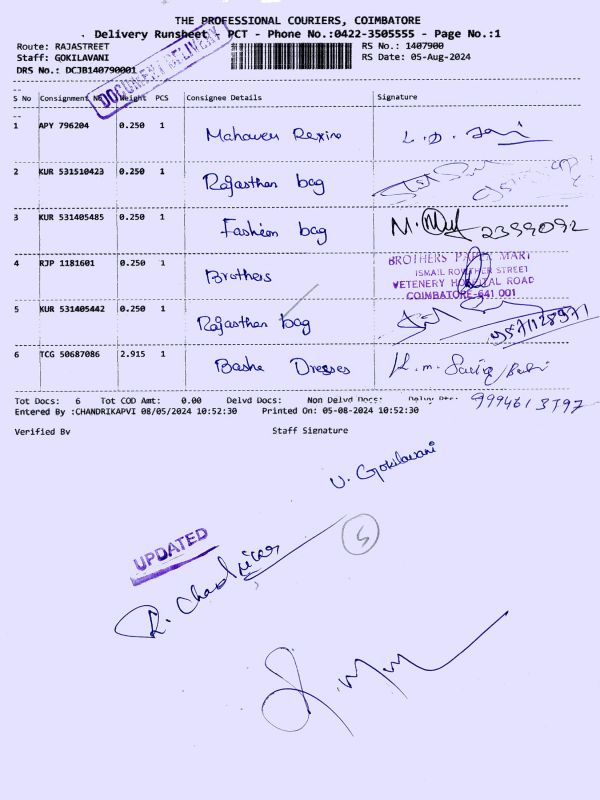 THE PROFESSIONAL COURIERS, COIMBATORE
Delivery Runsheet PCT - Phone No.:0422-3505555 - Page No.:1
Route: RAJASTREET RS No.: 1407900
Staff: GOKILAVANI RS Date: 05-Aug-2024
DRS No.: DCJB140790001
DOCUMENT DELIVERY
S No Consignment No Weight PCS Consignee Details Signature
1 APY 796204 0.250 1 Mahaveer Rexine
2 KUR 531510423 0.250 1 Rajasthan bag
3 KUR 531405485 0.250 1 Fashion bag M. 2399092
4 RJP 1181601 0.250 1 Brothers
BROTHERS PAPER MART
ISMAIL ROWTHER STREET
VETENERY HOSPITAL ROAD
COIMBATORE-641 001
5 KUR 531405442 0.250 1 Rajasthan bag 9571128971
6 TCG 50687086 2.915 1 Basha Dresses
Tot Docs: 6 Tot COD Amt: 0.00 Delvd Docs: Non Delvd Docs:
Entered By :CHANDRIKAPVI 08/05/2024 10:52:30 Printed On: 05-08-2024 10:52:30
Verified By Staff Signature
V. Gokilavani
UPDATED